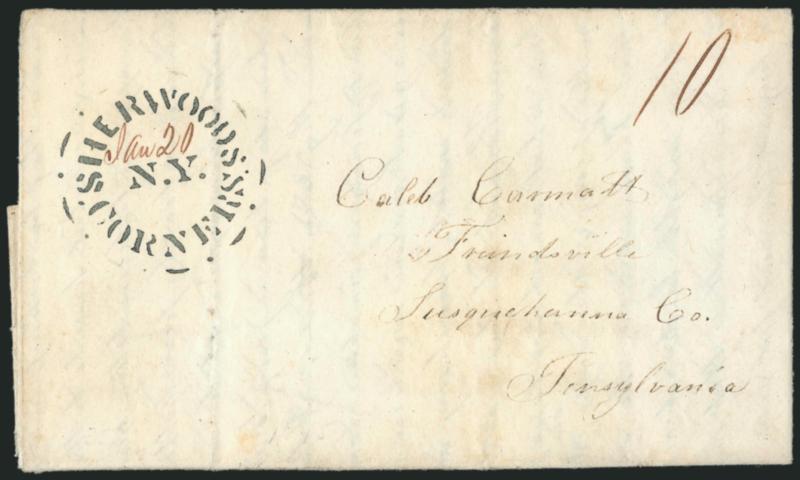 SHERWOODS
Jan 20
N.Y.
CORNERS
10
Caleb Carmalt
Friendsville
Susquehanna Co.
Pensylvania